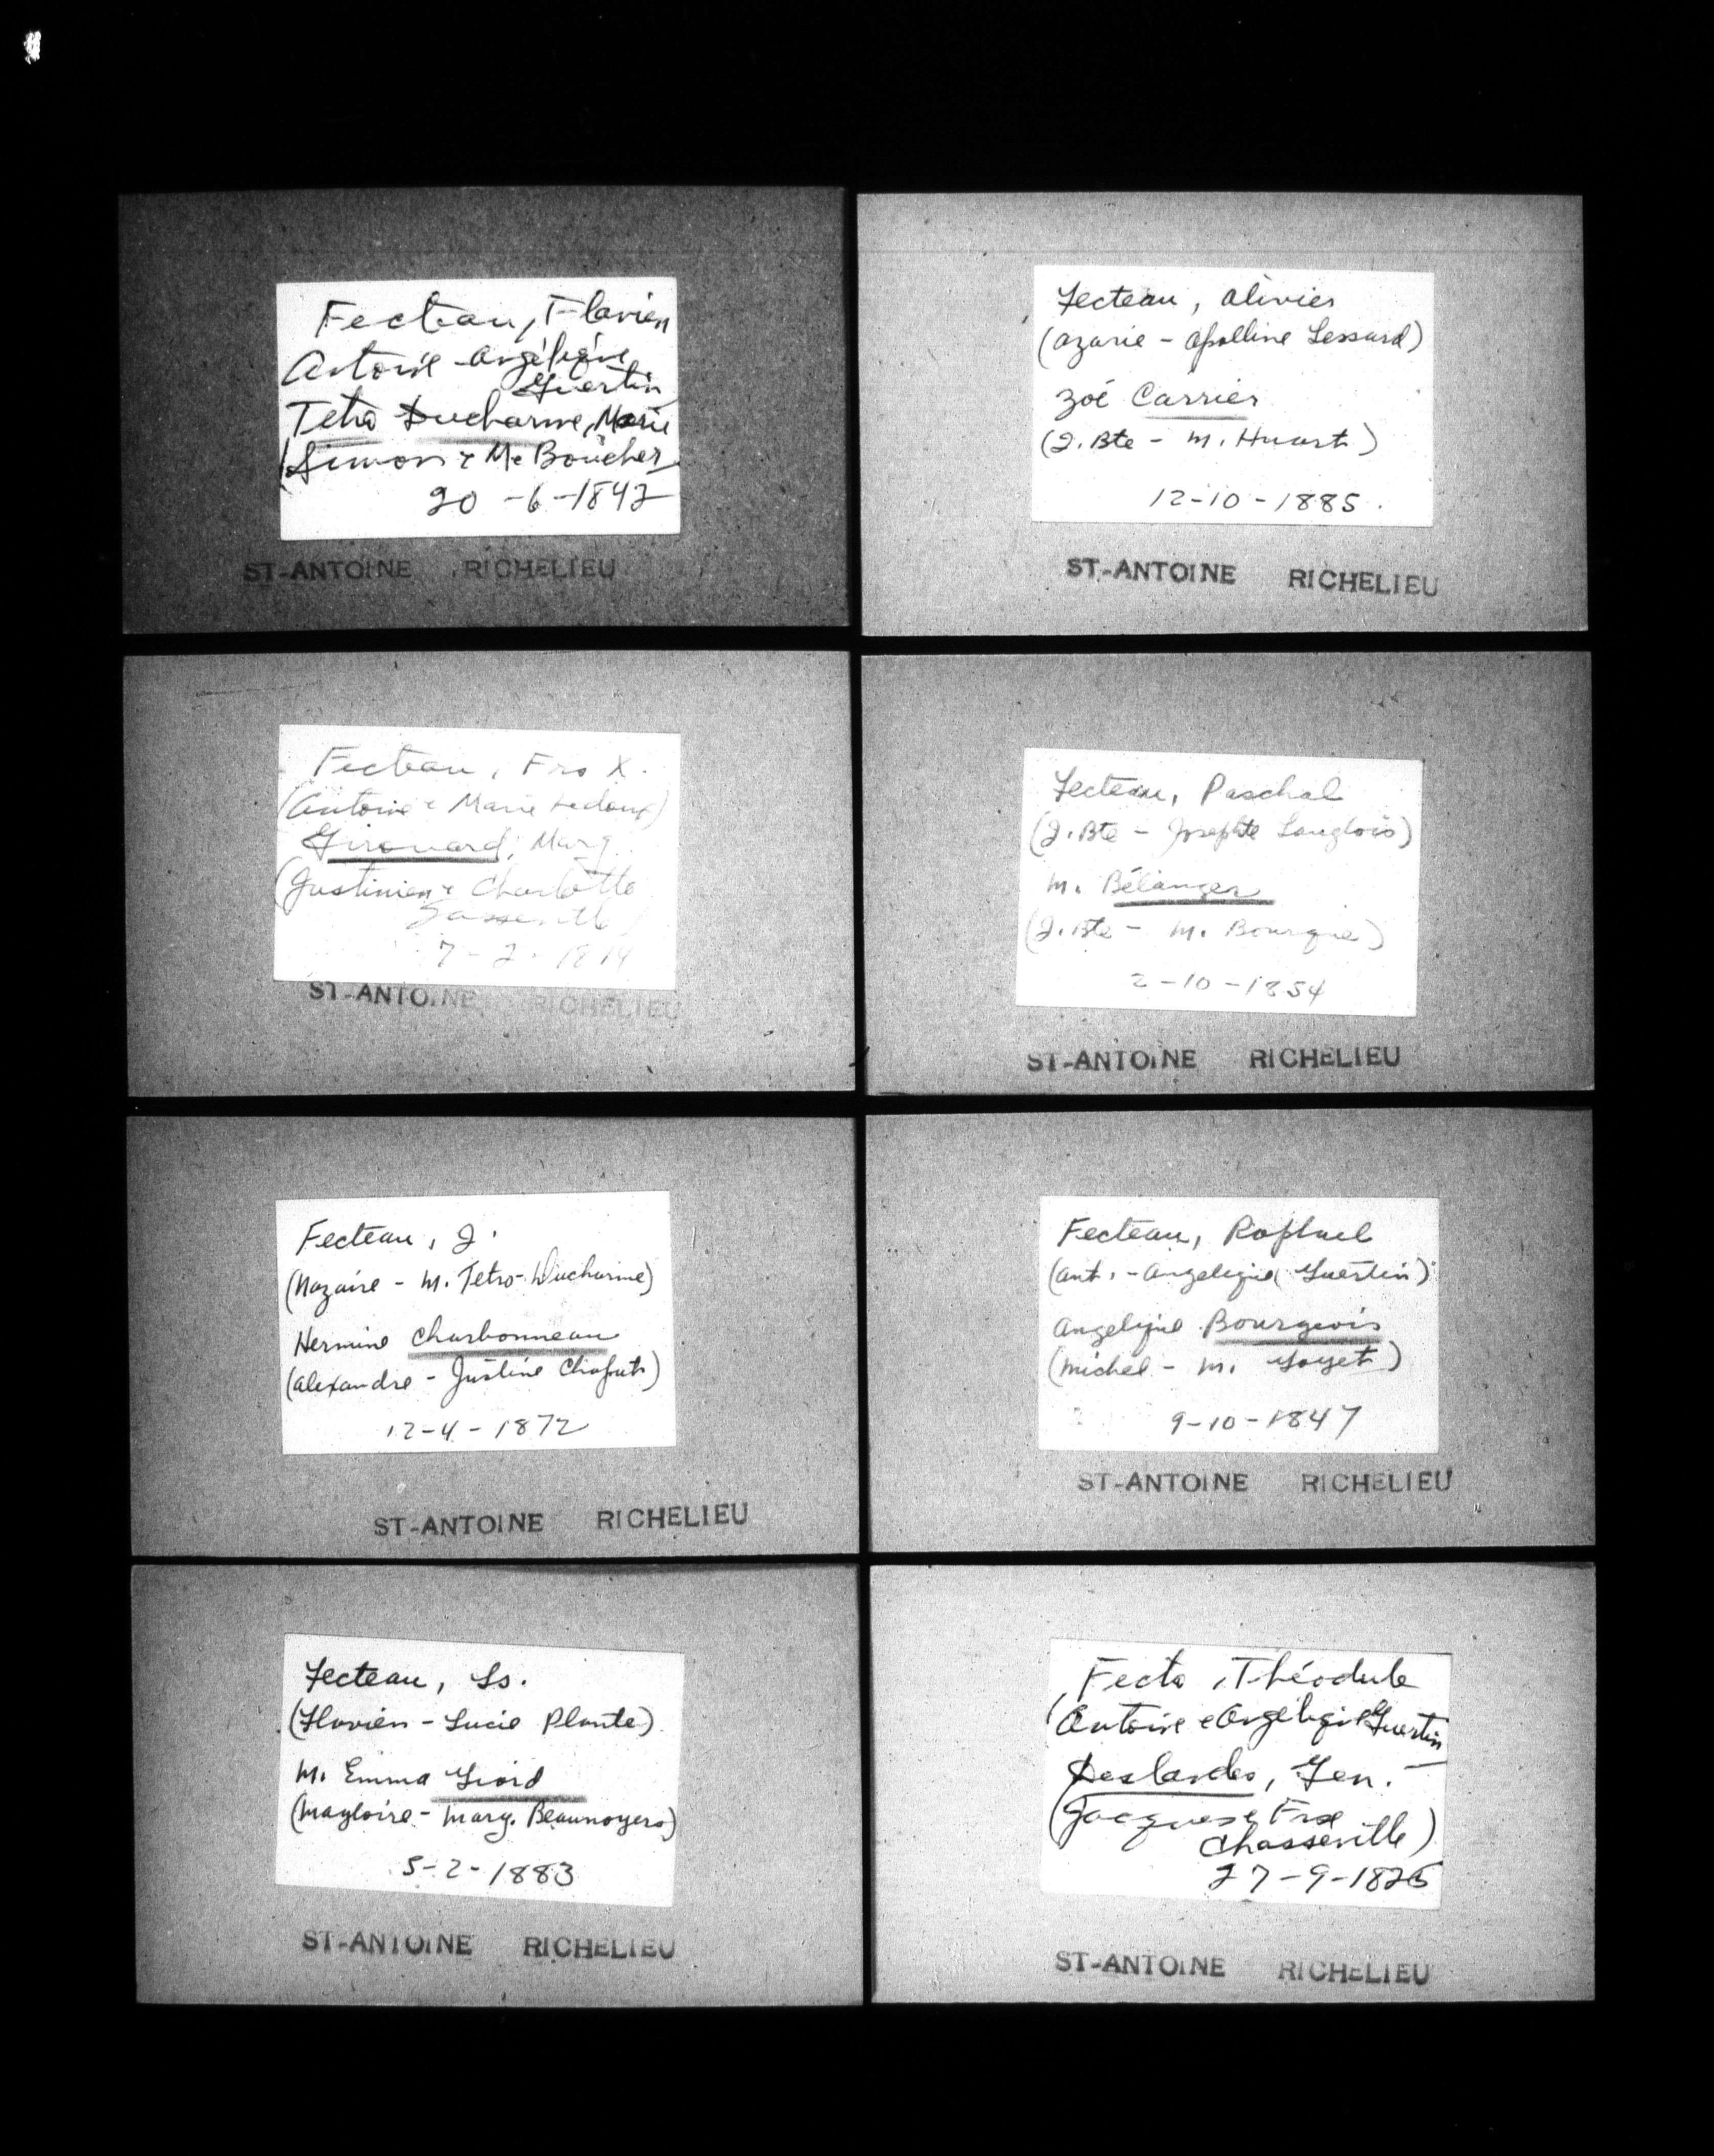 Fecteau, Flavien
Antoine - Angélique
Guertin
Tetro Ducharme, Marie
(Simon & Me Boucher
20 - 6 - 1842
ST-ANTOINE RICHELIEU
Fecteau, Frs X.
(Antoine & Marie Ledoux)
Girouard, Marg.
(Justinien & Charlotte
7 - 2 - 18
ST-ANTOINE RICHELIEU
Fecteau, J.
(Nazaire - M. Tetro-Ducharme)
Hermine Charbonneau
(Alexandre - Justine Chaput)
12-4-1872
ST-ANTOINE RICHELIEU
Fecteau, Ls.
(Flavien - Lucie Plante)
M. Emma Giard
(Magloire - Marg. Beaunoyers)
5-2-1883
ST-ANTOINE RICHELIEU
Fecteau, Olivier
(Azarie - Apolline Lessard)
Zoé Carrier
(J. Bte - M. Huart)
12-10-1885.
ST-ANTOINE RICHELIEU
Fecteau, Paschal
(J. Bte - Josephte Langlois)
M. Bélanger
(J. Bte - M. Bourque)
2-10-1854
ST-ANTOINE RICHELIEU
Fecteau, Raphael
(Ant. - Angelique Guertin)
Angelique Bourgeois
(Michel - M. Goyet)
9-10-1847
ST-ANTOINE RICHELIEU
Fecto, Théodule
(Antoine & Angélique Guertin
Deslandes, Gen.
(Jacques & Frse
Chasseville)
27-9-1826
ST-ANTOINE RICHELIEU